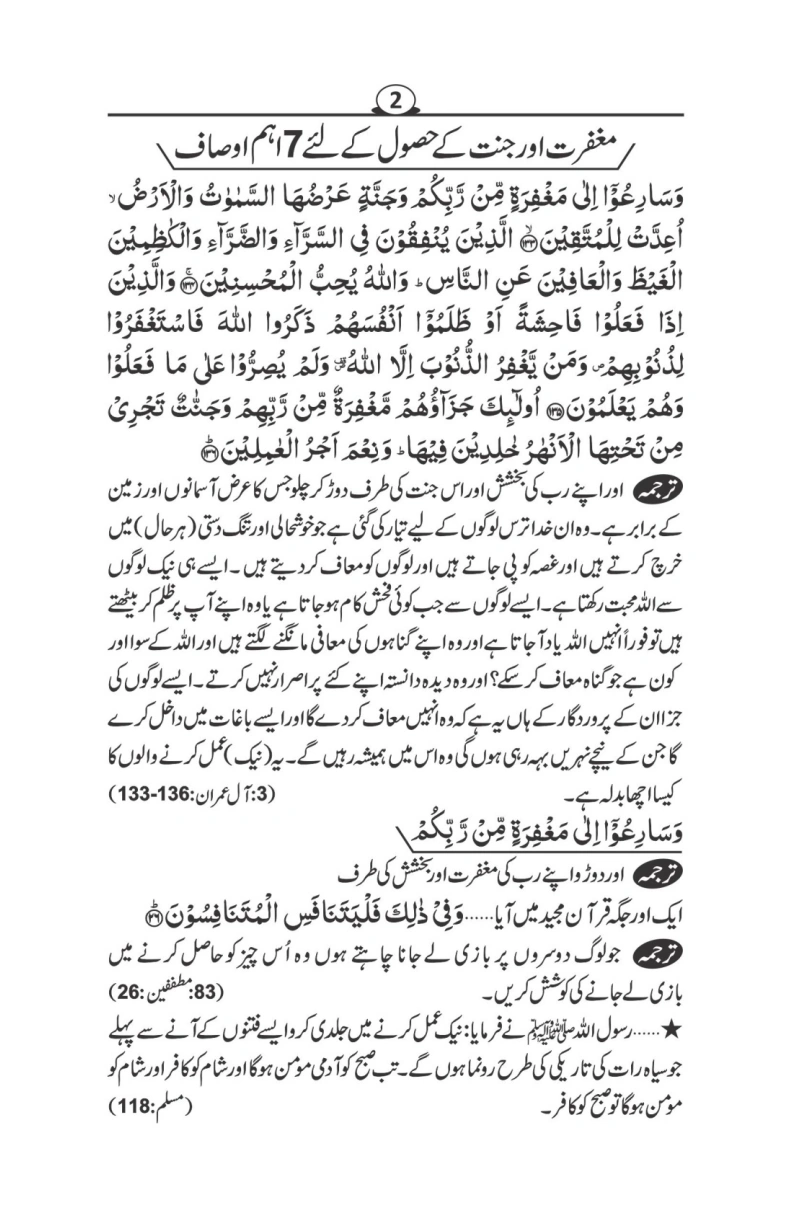 2
مغفرت اور جنت کے حصول کے لئے 7 اہم اوصاف
وَسَارِعُوْٓا اِلٰى مَغْفِرَةٍ مِّنْ رَّبِّكُمْ وَجَنَّةٍ عَرْضُهَا السَّمٰوٰتُ وَالْاَرْضُ ۙ
اُعِدَّتْ لِلْمُتَّقِيْنَ ﴿۱۳۳﴾ۙ الَّذِيْنَ يُنْفِقُوْنَ فِى السَّرَّآءِ وَالضَّرَّآءِ وَالْكٰظِمِيْنَ
الْغَيْظَ وَالْعَافِيْنَ عَنِ النَّاسِ ؕ وَاللّٰهُ يُحِبُّ الْمُحْسِنِيْنَ ﴿۱۳۴﴾ۚ وَالَّذِيْنَ
اِذَا فَعَلُوْا فَاحِشَةً اَوْ ظَلَمُوْٓا اَنْفُسَهُمْ ذَكَرُوا اللّٰهَ فَاسْتَغْفَرُوْا
لِذُنُوْبِهِمْ ۪ وَمَنْ يَّغْفِرُ الذُّنُوْبَ اِلَّا اللّٰهُ ۪ۗ وَلَمْ يُصِرُّوْا عَلٰى مَا فَعَلُوْا
وَهُمْ يَعْلَمُوْنَ ﴿۱۳۵﴾ اُولٰٓئِكَ جَزَآؤُهُمْ مَّغْفِرَةٌ مِّنْ رَّبِّهِمْ وَجَنّٰتٌ تَجْرِىْ
مِنْ تَحْتِهَا الْاَنْهٰرُ خٰلِدِيْنَ فِيْهَا ؕ وَنِعْمَ اَجْرُ الْعٰمِلِيْنَ ﴿۱۳۶﴾ؕ
ترجمہ اور اپنے رب کی بخشش اور اس جنت کی طرف دوڑ کر چلو جس کا عرض آسمانوں اور زمین
کے برابر ہے۔ وہ ان خدا ترس لوگوں کے لیے تیار کی گئی ہے جو خوشحالی اور تنگ دستی (ہر حال) میں
خرچ کرتے ہیں اور غصہ کو پی جاتے ہیں اور لوگوں کو معاف کر دیتے ہیں۔ ایسے ہی نیک لوگوں
سے اللہ محبت رکھتا ہے۔ ایسے لوگوں سے جب کوئی فحش کام ہو جاتا ہے یا وہ اپنے آپ پر ظلم کر بیٹھتے
ہیں تو فوراً انہیں اللہ یاد آ جاتا ہے اور وہ اپنے گناہوں کی معافی مانگنے لگتے ہیں اور اللہ کے سوا اور
کون ہے جو گناہ معاف کر سکے؟ اور وہ دیدہ دانستہ اپنے کئے پر اصرار نہیں کرتے۔ ایسے لوگوں کی
جزا ان کے پروردگار کے ہاں یہ ہے کہ وہ انہیں معاف کر دے گا اور ایسے باغات میں داخل کرے
گا جن کے نیچے نہریں بہہ رہی ہوں گی وہ اس میں ہمیشہ رہیں گے۔ یہ (نیک) عمل کرنے والوں کا
کیسا اچھا بدلہ ہے۔ (3:آل عمران:136-133)
وَسَارِعُوْٓا اِلٰى مَغْفِرَةٍ مِّنْ رَّبِّكُمْ
ترجمہ اور دوڑو اپنے رب کی مغفرت اور بخشش کی طرف
ایک اور جگہ قرآن مجید میں آیا......وَفِىْ ذٰلِكَ فَلْيَتَنَافَسِ الْمُتَنَافِسُوْنَ ﴿۲۶﴾ؕ
ترجمہ جو لوگ دوسروں پر بازی لے جانا چاہتے ہوں وہ اُس چیز کو حاصل کرنے میں
بازی لے جانے کی کوشش کریں۔ (83:مطففین:26)
★......رسول اللہ ﷺ نے فرمایا: نیک عمل کرنے میں جلدی کرو ایسے فتنوں کے آنے سے پہلے
جو سیاہ رات کی تاریکی کی طرح رونما ہوں گے۔ تب صبح کو آدمی مومن ہوگا اور شام کو کافر اور شام کو
مومن ہوگا تو صبح کو کافر۔ (مسلم:118)